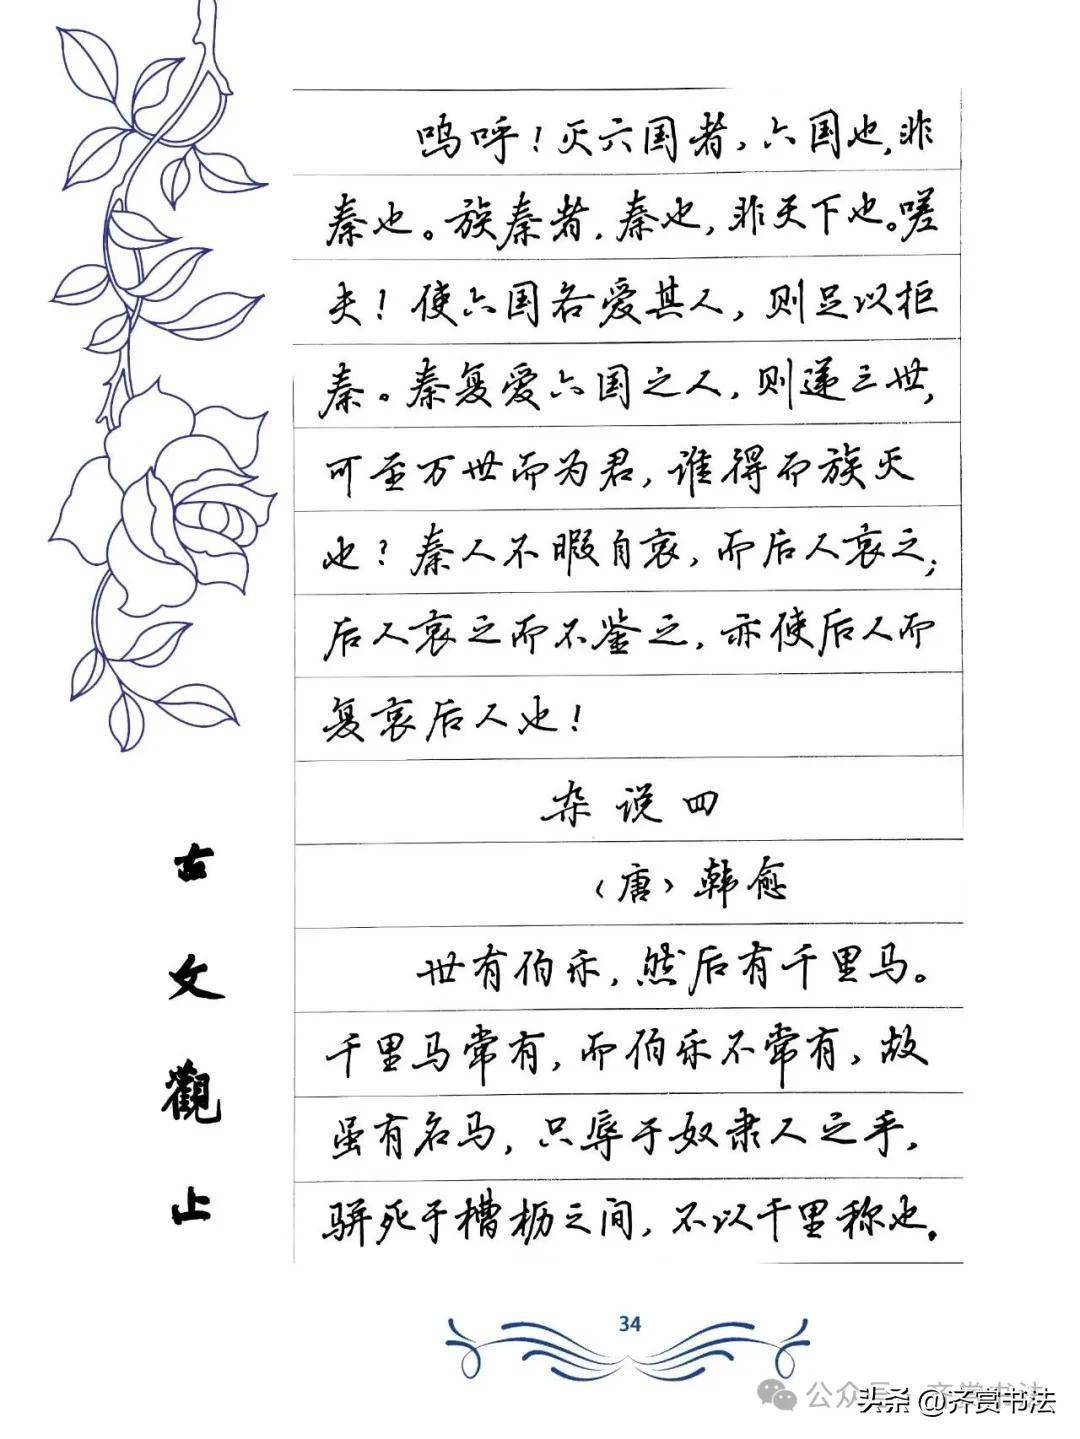 呜呼！灭六国者，六国也，非
秦也。族秦者，秦也，非天下也。嗟
夫！使六国各爱其人，则足以拒
秦。秦复爱六国之人，则递三世，
可至万世而为君，谁得而族灭
也？秦人不暇自哀，而后人哀之；
后人哀之而不鉴之，亦使后人而
复哀后人也！
杂说四
（唐）韩愈
世有伯乐，然后有千里马。
千里马常有，而伯乐不常有，故
虽有名马，只辱于奴隶人之手，
骈死于槽枥之间，不以千里称也。
古文觀止
34
公众号·齐赏书法
头条 @齐赏书法